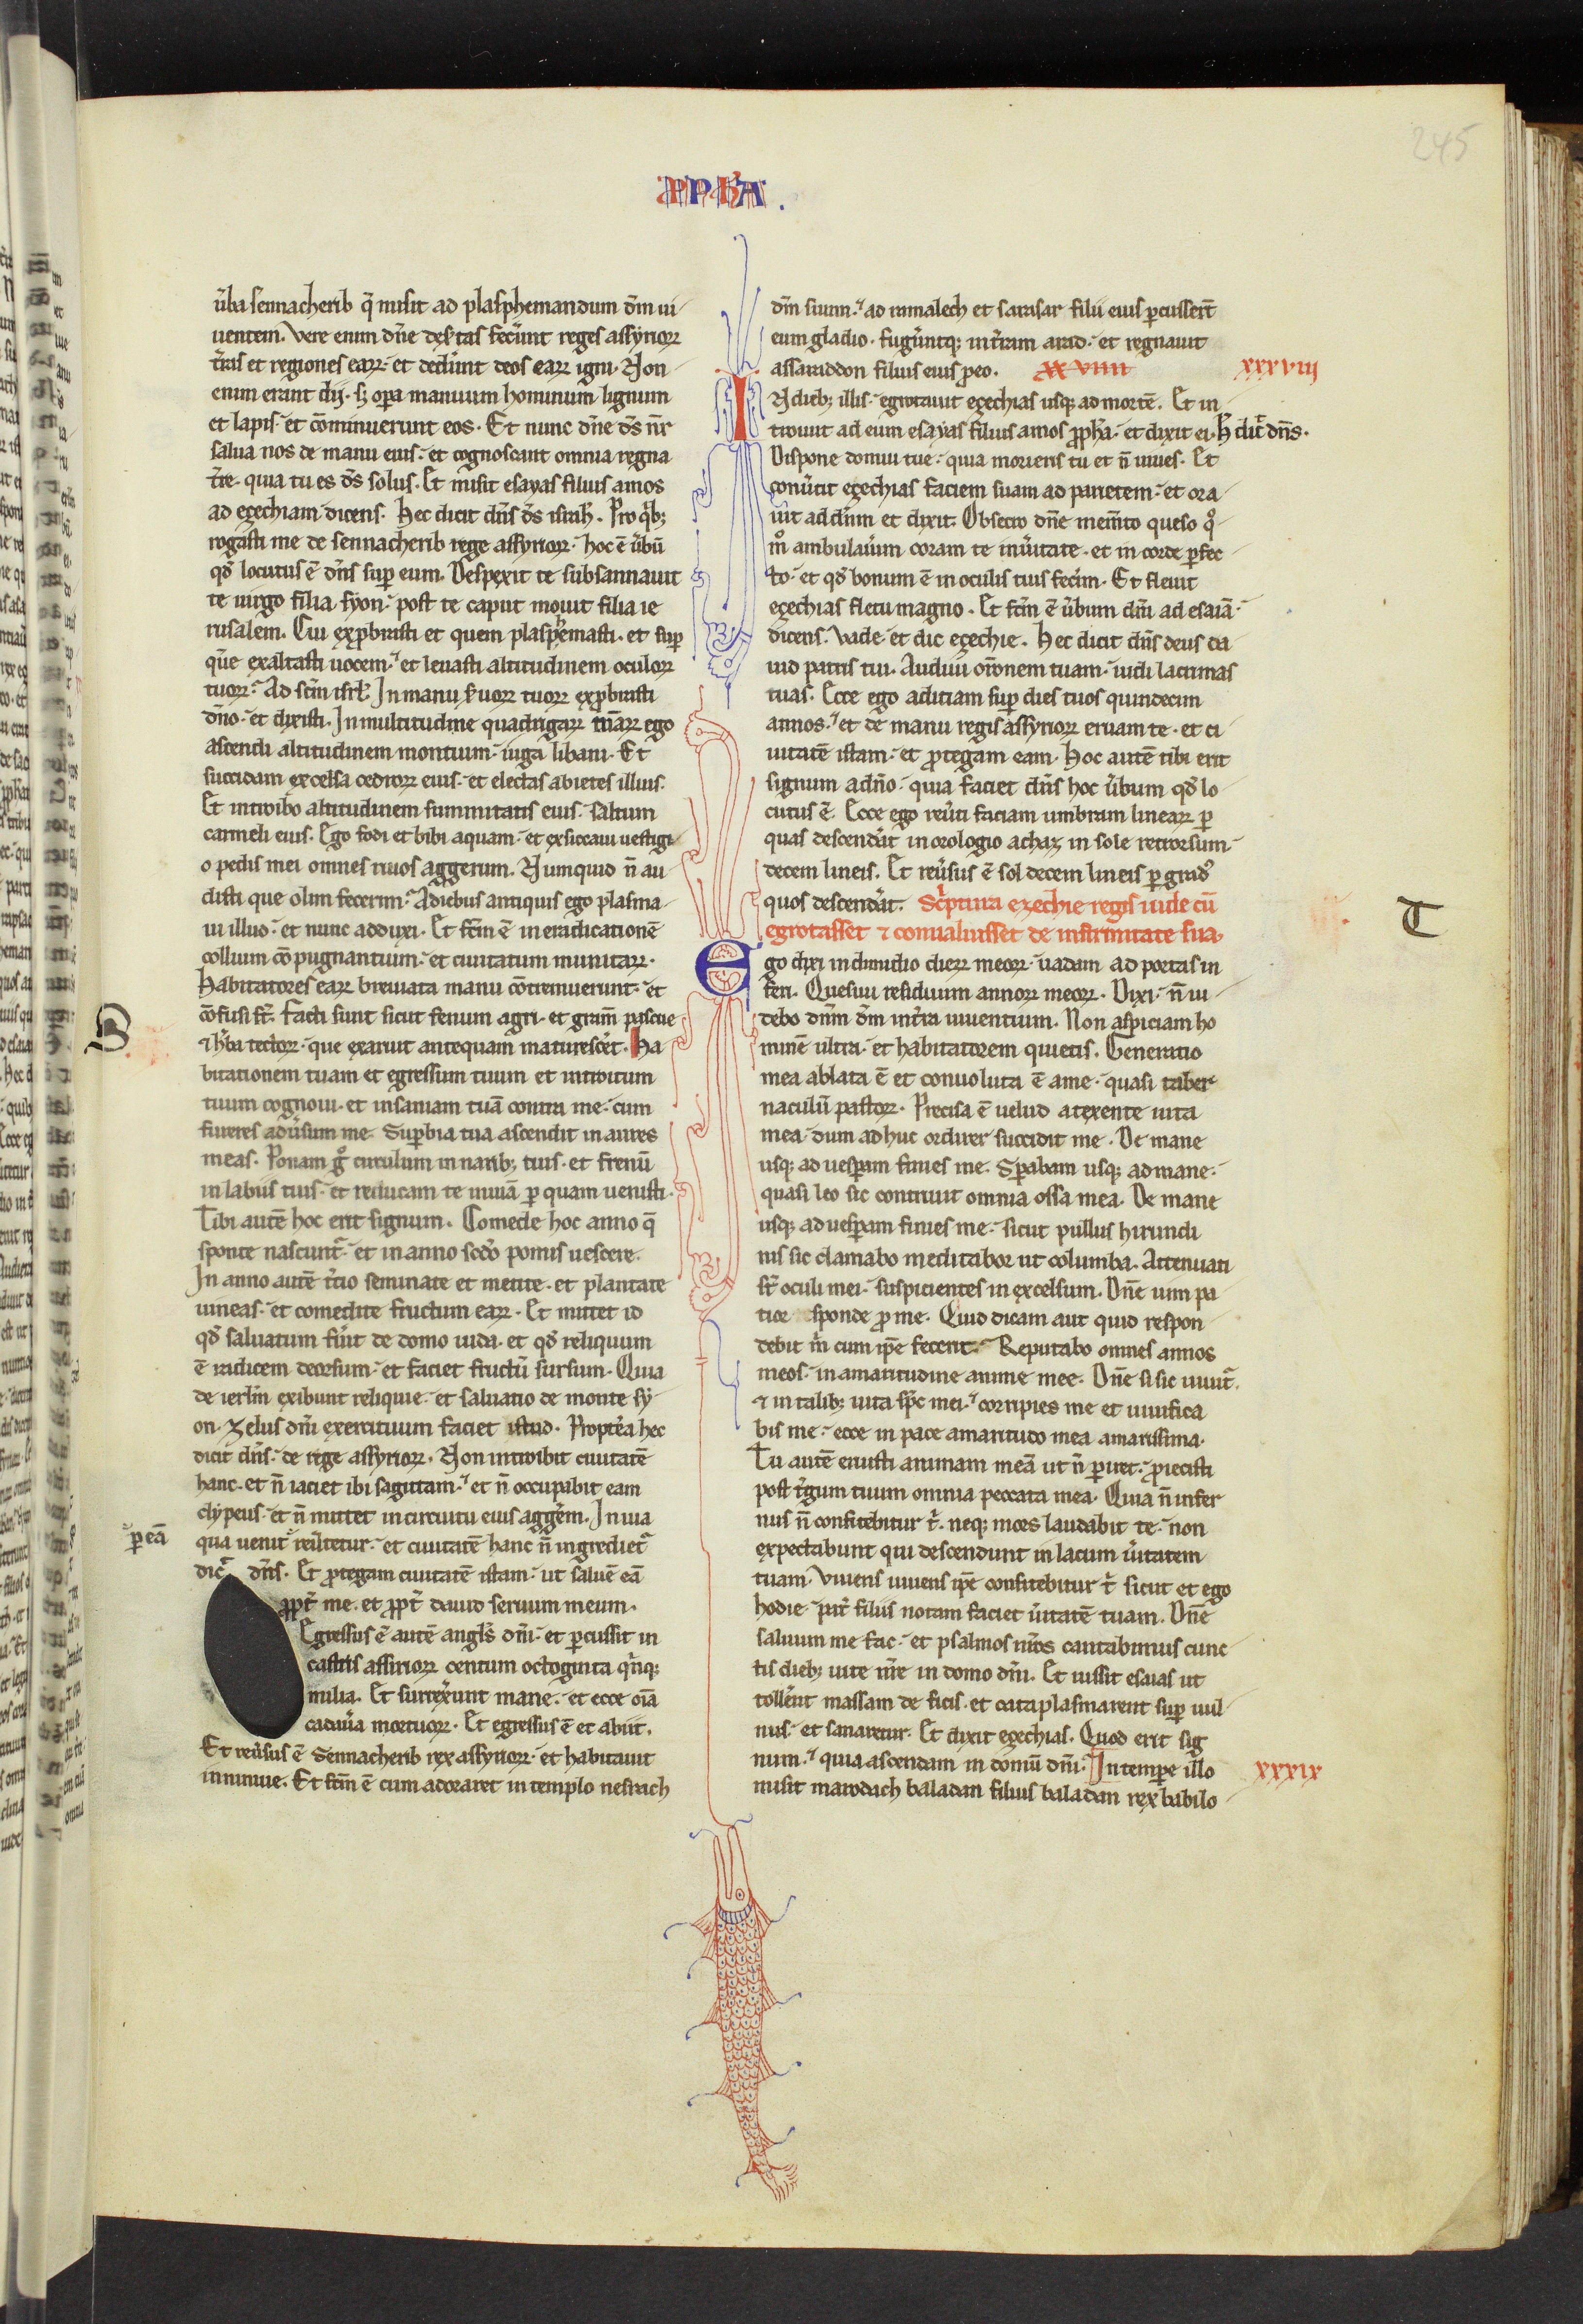 245
PPHA.
ũba sennacherib q̃ misit ad plasphemandum dm̃ ui
uentem. Vere enim dñe desertas fecer̃unt reges assyrioꝝ
t̃ras et regiones eaꝝ. et deder̃unt deos eaꝝ igni. Non
enim erant dij. sꝫ opa manuum hominum lignum
et lapis. et cõminuerunt eos. Et nunc dñe ds̃ nr̃
salua nos de manu eius. et cognoscant omnia regna
t̃re. quia tu es ds̃ solus. Et misit esayas filius amos
ad ezechiam dicens. Hec dicit dñs ds̃ israh̃l. Pro qͥbꝫ
rogasti me de sennacherib rege assyrioꝝ. hoc ẽ ũbũ
qđ locutus ẽ dñs suꝑ eum. Despexit te subsannauit
te uirgo filia syon. post te caput mouit filia ie
rusalem. Cui exꝓbrasti et quem plasphemasti. et suꝑ
quẽ exaltasti uocem. et leuasti altitudinem oculoꝝ
tuoꝝ. Ad scm̃ isrl̃. In manu s̃uoꝝ tuoꝝ exꝓbrasti
dño. et dixisti. In multitudine quadrigaꝝ meaꝝ ego
ascendi altitudinem montium. iuga libani. Et
succidam excelsa cedroꝝ eius. et electas abietes illius.
Et introibo altitudinem summitatis eius. saltum
carmeli eius. Ego fodi et bibi aquam. et exsiccaui uestigi
o pedis mei omnes riuos aggerum. Numquid ñ au
disti que olim fecerim. Adiebus antiquis ego plasma
ui illud. et nunc adduxi. Et fcm̃ ẽ in eradicationẽ
collium cõpugnantium. et ciuitatum munitaꝝ.
Habitatores eaꝝ breuiata manu cõtremuerunt. et
cõfusi st̃. Facti sunt sicut fenum agri. et gram̃ pascue
B
et h̃ba tectoꝝ. que exaruit antequam maturescet̃. Ha
bitationem tuam et egressum tuum et introitum
tuum cognoui. et insaniam tuã contra me. cum
fureres adũsum me. Suꝑbia tua ascendit in aures
meas. Ponam gͦ circulum in naribꝫ tuis. et frenũ
in labiis tuis. et reducam te in uiã ꝑ quam uenisti.
Tibi autẽ hoc erit signum. Comede hoc anno q̃
sponte nascunt̃. et in anno scđo pomis uescere.
In anno autẽ t̃cio seminate et metite. et plantate
uineas. et comedite fructum eaꝝ. Et mittet id
qđ saluatum fũit de domo iuda. et qđ reliquum
ẽ radicem deorsum. et faciet fructũ sursum. Quia
de ierlm̃ exibunt reliquie. et saluatio de monte sy
on. Zelus dñi exercituum faciet istud. Propt̃ea hec
dicit dñs. de rege assyrioꝝ. Non introibit ciuitatẽ
hanc. et ñ iaciet ibi sagittam. et ñ occupabit eam
clypeus. et ñ mittet in circuitu eius agg̃em. In uia
ꝑ eã
qua uenit reũtetur. et ciuitatẽ hanc ñ ingrediet̃
dic̃ dñs. Et ꝓtegam ciuitatẽ istam. ut saluẽ eã
ꝓpt̃ me. et ꝓpt̃ dauid seruum meum.
Egressus ẽ autẽ angl̃s dñi. et ꝑcussit in
castris assirioꝝ centum octoginta qͥnqꝫ
milia. Et surrex̃unt mane. et ecce oĩa
cadaũa mortuoꝝ. Et egressus ẽ et abiit.
Et reũsus ẽ Sennacherib rex assyrioꝝ. et habitauit
in niniue. Et fcm̃ ẽ cum adoraret in templo nesrach
dm̃ suum. ad rimalech et sarasar filii eius ꝑcusser̃t
eum gladio. fuger̃untqꝫ in t̃ram arad. et regnauit
assaraddon filius eius ꝓ eo. xxviiii xxxviii
IN diebꝫ illis. egrotauit ezechias usqꝫ ad mortẽ. Et in
troiuit ad eum esayas filius amos ꝓph̃a. et dixit ei. H̃ dic̃ dñs.
Dispone domui tue. quia morieris tu et ñ uiues. Et
conũtit ezechias faciem suam ad parietem. et ora
uit ad dñm et dixit. Obsecro dñe mem̃to queso qͦ
mͦ ambulauim coram te in ũitate. et in corde ꝑfec
to. et qđ bonum ẽ in oculis tuis fecim̃. Et fleuit
ezechias fletu magno. Et fcm̃ ẽ ũbum dñi ad esaiã.
dicens. Vade. et dic ezechie. Hec dicit dñs deus da
uid patris tui. Audiui or̃onem tuam. uidi lacrimas
tuas. Ecce ego adiciam suꝑ dies tuos quindecim
annos. et de manu regis assyrioꝝ eruam te. et ci
uitatẽ istam. et ꝓtegam eam. Hoc autẽ tibi erit
signum a dño. quia faciet dñs hoc ũbum qđ lo
cutus ẽ. Ecce ego reũti faciam umbram lineaꝝ ꝑ
quas descender̃at in orologio achaz in sole retrorsum.
decem lineis. Et reũsus ẽ sol decem lineis ꝑ gradꝰ
quos descender̃at. Sc̃ptura ezechie regis iude cũ
T
egrotasset et conualuisset de infirmitate sua.
Ego dixi in dimidio dieꝝ meoꝝ. uadam ad portas in
feri. Quesiui residuum annoꝝ meoꝝ. Dixi. ñ ui
debo dñm dm̃ in t̃ra uiuentium. Non aspiciam ho
minẽ ultra. et habitatorem quietis. Generatio
mea ablata ẽ et conuoluta ẽ a me. quasi taber
naculũ pastoꝝ. Precisa ẽ uelud a texente uita
mea. dum ad huc ordirer succidit me. De mane
usqꝫ ad uesꝑam finies me. Sꝑabam usqꝫ ad mane.
quasi leo sic contriuit omnia ossa mea. De mane
usqꝫ ad uesꝑam finies me. sicut pullus hirundi
nis sic clamabo meditabor ut columba. Attenuati
st̃ oculi mei. suspicientes in excelsum. Dñe uim pa
tior sponde ꝓ me. Quid dicam aut quid respon
debit m̃ cum ipẽ fecerit. Reputabo omnes annos
meos. in amaritudine anime mee. Dñe si sic uiuit̃.
et in talibꝫ uita sp̃c mei. corripies me et uiuifica
bis me. ecce in pace amaritudo mea amarissima.
Tu autẽ eruisti animam meã ut ñ ꝑiret. ꝓiecisti
post t̃gum tuum omnia peccata mea. Quia ñ infer
nus ñ confitebitur t̃. neqꝫ mors laudabit te. non
expectabunt qui descendunt in lacum ũitatem
tuam. Viuens uiuens ipẽ confitebitur t̃ sicut et ego
hodie. pat̃ filiis notam faciet ũitatẽ tuam. Dñe
saluum me fac. et psalmos nr̃os cantabimus cunc
tis diebꝫ uite nr̃e in domo dñi. Et iussit esaias ut
toller̃ent massam de ficis. et cataplasmarent suꝑ uul
nus. et sanaretur. Et dixit ezechias. Quod erit sig
num. quia ascendam in domũ dñi. In tempe illo xxxix
misit marodach baladan filius baladan rex babilo